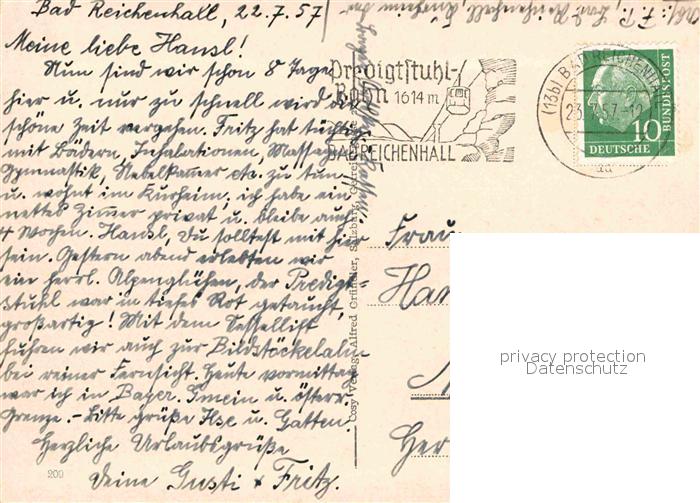 Bad Reichenhall, 22.7.57
Meine liebe Hansl!
Nun sind wir schon 8 Tage
hier u. nur zu schnell wird die
schöne Zeit vergehen. Fritz hat tüchtig
mit Bädern, Inhalationen, Massagen
Gymnastik, Nebelkammer etc. zu tun
u. wohnt im Kurheim; ich habe ein
nettes Zimmer privat u. bleibe auch
4 Wochen. Hansl, Du solltest mit hier
sein. Gestern abend erlebten wir
ein herrl. Alpenglühen, der Predigt-
stuhl war in tiefes Rot getaucht,
großartig! Mit dem Sessellift
fuhren wir auch zur
bei reiner Fernsicht. Heute vormittag
war ich in Bayer. Gmein u. österr.
Grenze. – Bitte grüße Ilse u. Gatten.
Herzliche Urlaubsgrüße
Deine Gusti + Fritz.
200
Predigtstuhl-
Bahn 1614 m
BAD REICHENHALL
(13b) BAD REICHENH
23. .57.-12
DEUTSCHE
BUNDESPOST
10
Cosy Verlag Alfred Gründler, Salzburg,
Frau
Han
Her
privacy protection
Datenschutz